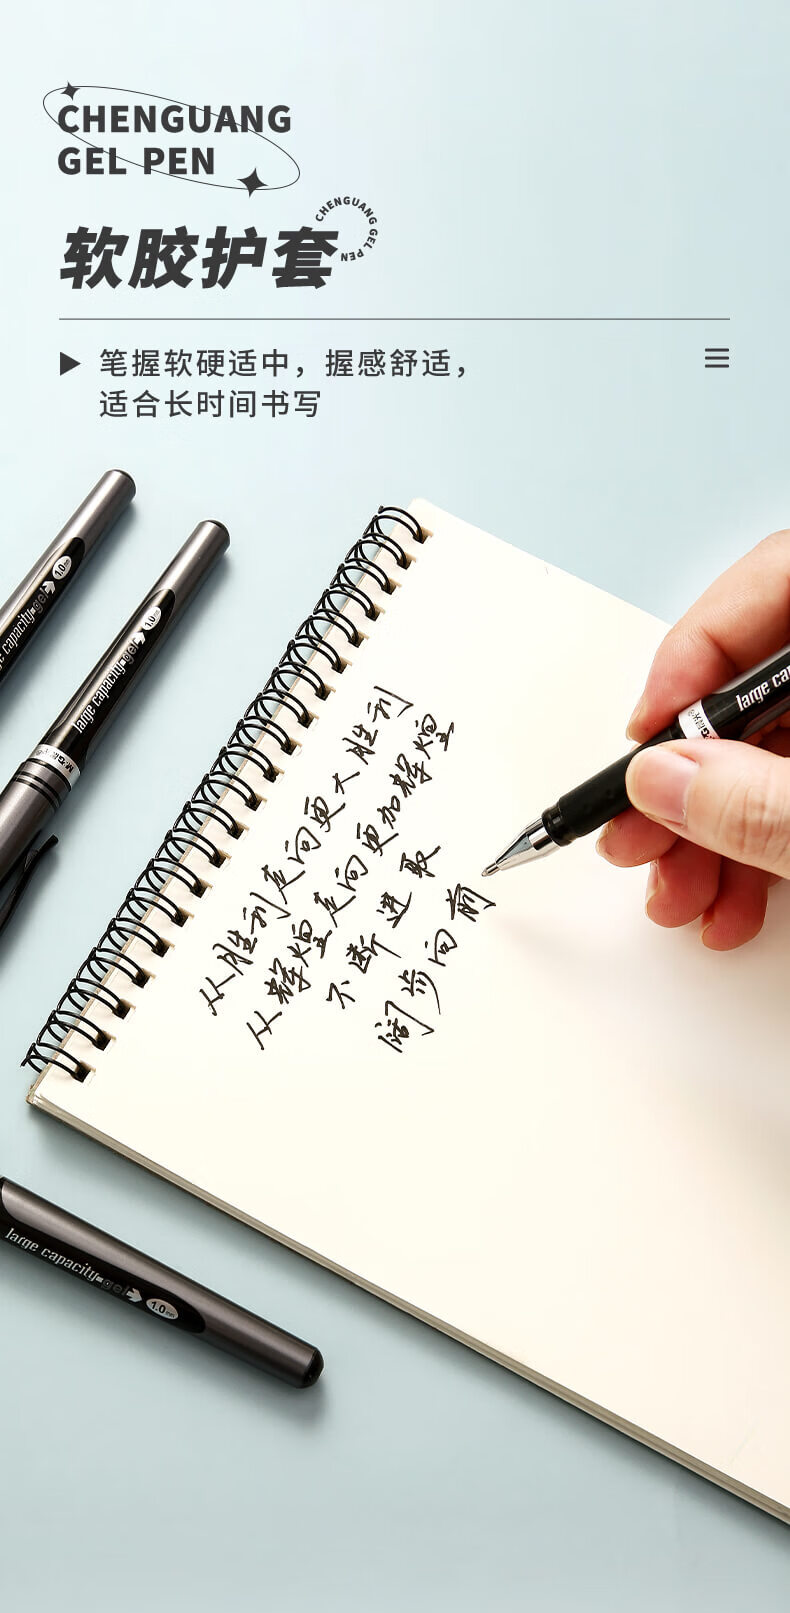 CHENGUANG
GEL PEN
CHENGUANG GEL PEN
软胶护套
笔握软硬适中，握感舒适，
适合长时间书写
large capacity gel 1.0mm
large capacity gel 1.0
M&G晨光
large ca
M&G晨光
从胜利走向更大胜利
从辉煌走向更加辉煌
不断进取
阔步向前
large capacity gel 1.0mm